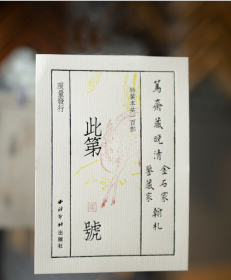 篤齋藏晚清
金石家
鑒藏家
翰札
特裝本共一百部
此第 號
限量發行
西泠印社出版社